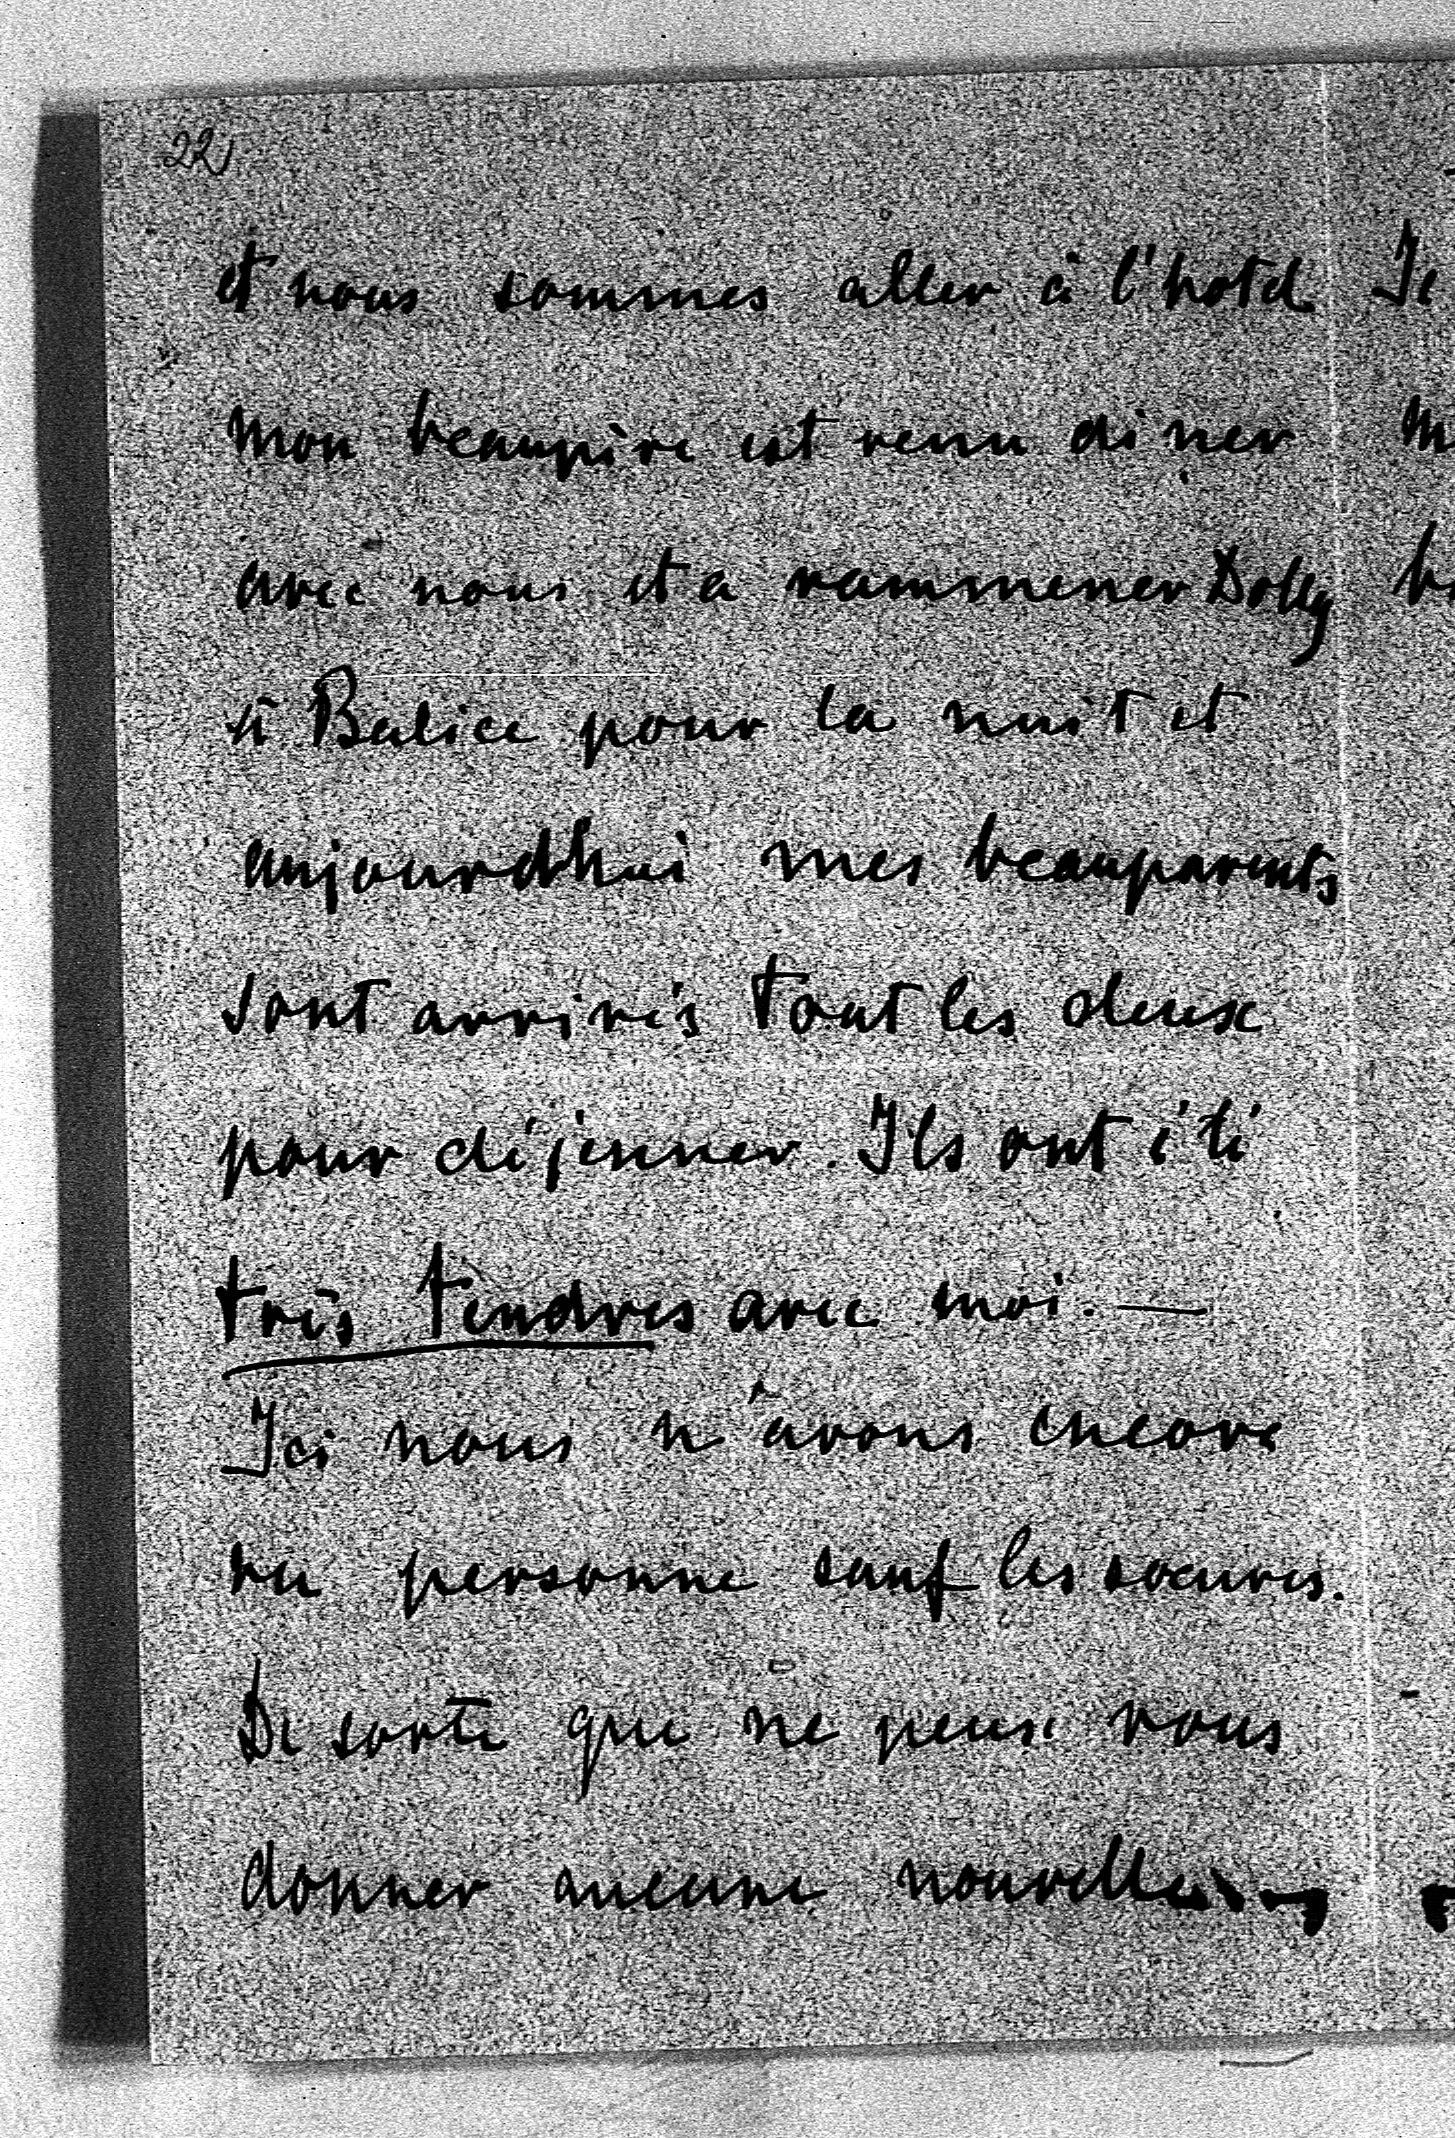 22
et nous sommes aller à l'hotel
mon beaupère est venu diner
avec nous et a rammener Dolly
à Balice pour la nuit et
aujourdhui mes beauparents
sont arrivés tout les deux
pour déjeuner. Ils ont été
très tendres avec moi. —
Ici nous n'avons encore
vu personne sauf les soeures.
De sorte que ne peux vous
donner aucune nouvelle